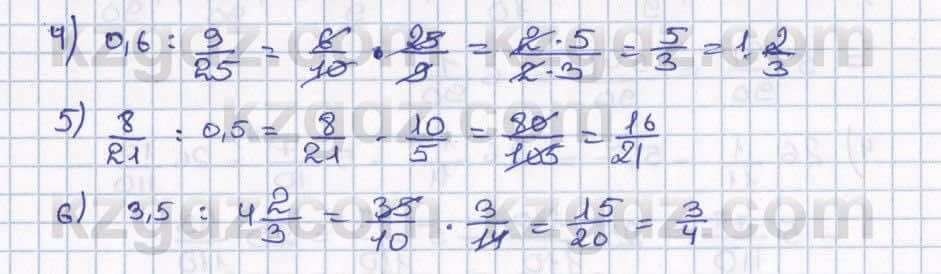 4) 0,6 : 9/25 = 6/10 · 25/9 = 2·5/2·3 = 5/3 = 1 2/3
5) 8/21 : 0,5 = 8/21 · 10/5 = 80/105 = 16/21
6) 3,5 : 4 2/3 = 35/10 · 3/14 = 15/20 = 3/4